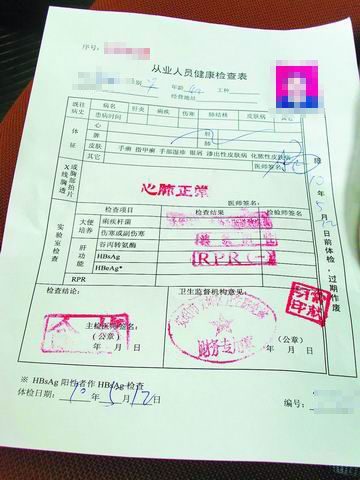 序号:
从业人员健康检查表
性别 女 年龄 工种
经营地址
既往病史 病名 肝炎 痢疾 伤寒 肺结核 皮肤病 其它
患病时间
体征 心 肝
脾 肺
皮肤 手癣 指甲癣 手部湿疹 银屑 渗出性皮肤病 化脓性皮肤病
其它
X线胸透或胸部拍片 心肺正常
医师签名:
检查项目 检查结果 检验师签名
实验室检查 大便培养 痢疾杆菌
伤寒或副伤寒
肝功能 谷丙转氨酶
HBsAg RPR(-)
HBeAg*
RPR
限10年5月 日前体检,过期作废
检查结论: 卫生监督机构意见:
合格
主检医师签名:
(公章) 财务专用章 (公章)
年 月 日 年 月 日
※ HBsAg 阳性者作 HBsAg 检查
体检日期: 10年5月12日 编号: